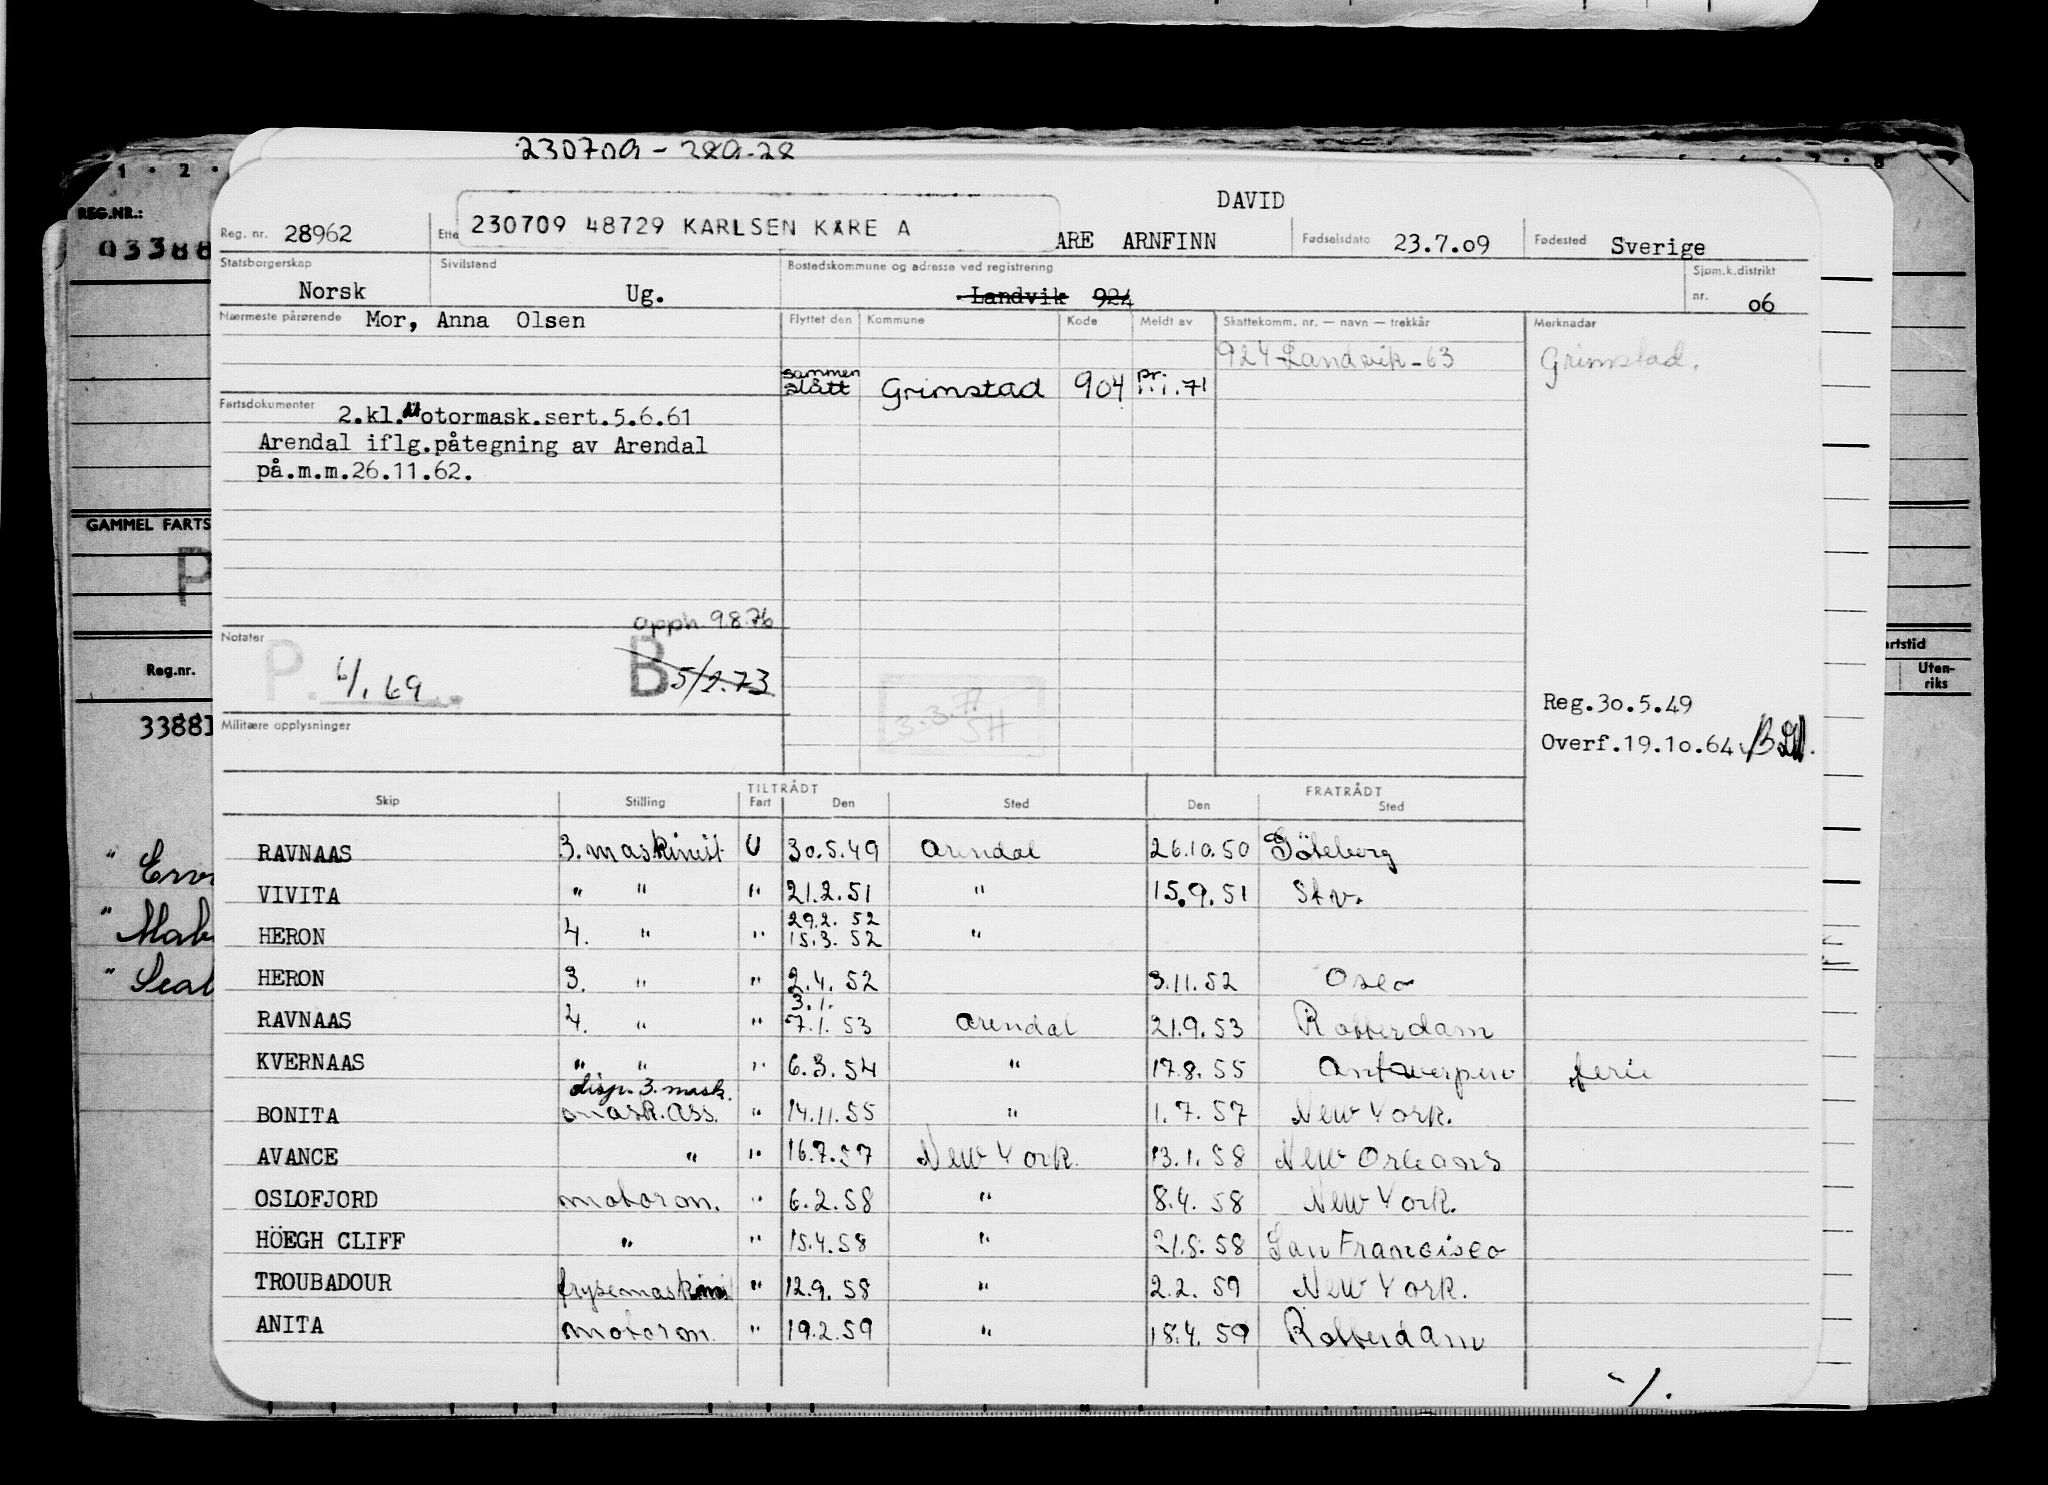 230709 - 289.28
1 . 2 .
REG.NR.:
03388
GAMMEL FARTS
P
Reg.nr.
3388I
" Erv
" Mab
" Seal
artstid
Uten-
riks
DAVID
Reg. nr. 28962 Ette 230709 48729 KARLSEN KÅRE A ARE ARNFINN Fødselsdato 23.7.09 Fødested Sverige
Statsborgerskap Norsk Sivilstand Ug. Bostedskommune og adresse ved registrering Landvik 924 Sjøm.k.distrikt nr. 06
Nærmeste pårørende Mor, Anna Olsen Flyttet den Kommune Kode Meldt av Skattekomm. nr. — navn — trekkår Merknader
924-Landvik-63 Grimstad.
sammen
slått Grimstad 904 pr. 1.1.71
Fartsdokumenter 2.kl.Motormask.sert.5.6.61
Arendal iflg.påtegning av Arendal
på.m.m.26.11.62.
opph. 9.8.76
Notater P. 4/1.69 B 5/2.73
3.3.71
SH
Militære opplysninger
Reg.3o.5.49
Overf.19.1o.64
TILTRÅDT FRATRÅDT
Skip Stilling Fart Den Sted Den Sted
RAVNAAS 3. maskinist U 30.5.49 Arendal 26.10.50 Göteborg
VIVITA " " " 21.2.51 " 15.9.51 Stv.
29.2. 52
HERON 4. " " 15.3. 52 "
HERON 3. " " 2.4. 52 3.11.52 Oslo
3.1.
RAVNAAS 4. " " 7.1. 53 Arendal 21.9.53 Rotterdam
KVERNAAS " " " 6.3.54 " 17.8.55 Antwerpen ferie
disp. 3. mask.
BONITA mask. ass. " 14.11.55 " 1.7.57 New York.
AVANCE " " 16.7.57 New York. 13.1.58 New Orleans
OSLOFJORD motorm. " 6.2.58 " 8.4.58 New York.
HÖEGH CLIFF " " 15.4.58 " 21.8.58 San Francisco
TROUBADOUR frysemaskinist " 12.9.58 " 2.2.59 New York.
ANITA motorm. " 19.2.59 " 18.4.59 Rotterdam
-/.